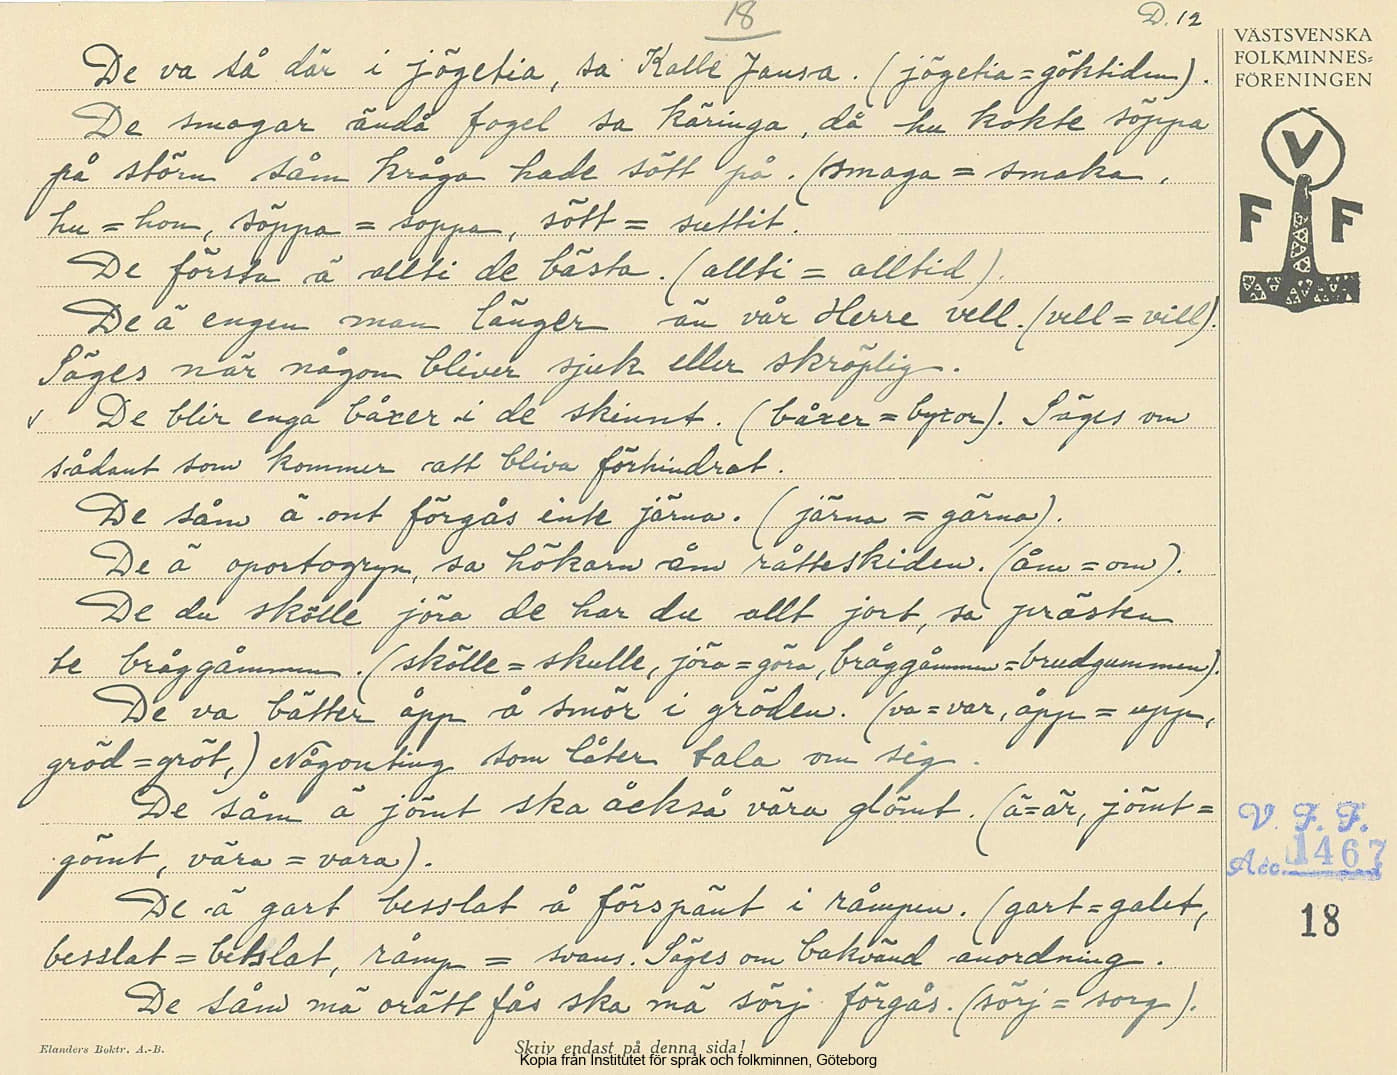 18
D. 12
De va så där i jögetia, sa Kalle Jansa. (jögetia = göktiden).
De smagar ändå fogel sa käringa, då hu kokte söppa
på störn såm kråga hade sött på. (smaga = smaka,
hu = hon, söppa = soppa, sött = suttit.
De första ä allti de bästa. (allti = alltid).
De ä engen man länger än vår Herre vell. (vell = vill).
Säges när någon bliver sjuk eller skröplig.
De blir enga båxer i de skinnt. (båxer = byxor). Säges om
sådant som kommer att bliva förhindrat.
De såm ä ont förgås inte järna. (järna = gärna).
De ä oportogryn, sa hökarn åm råtteskiden. (åm = om).
De du skölle jöra de har du allt jort, sa prästen
te bråggåmmen. (skölle = skulle, jöra = göra, bråggåmmen = brudgummen).
De va bätter åpp å smör i gröden. (va = var, åpp = upp,
gröd = gröt,) Någonting som låter tala om sig.
De såm ä jömt ska åckså vära glömt. (ä = är, jömt =
gömt, vära = vara).
De ä gart besslat å förspänt i råmpen. (gart = galet,
besslat = betslat, råmp = svans. Säges om bakvänd anordning.
De såm mä orätt fås ska mä sörj förgås. (sörj = sorg).
VÄSTSVENSKA
FOLKMINNES-
FÖRENINGEN
V
F F
V. F. F.
Acc. 1467
18
Elanders Boktr. A.-B.
Skriv endast på denna sida!
Kopia från Institutet för språk och folkminnen, Göteborg